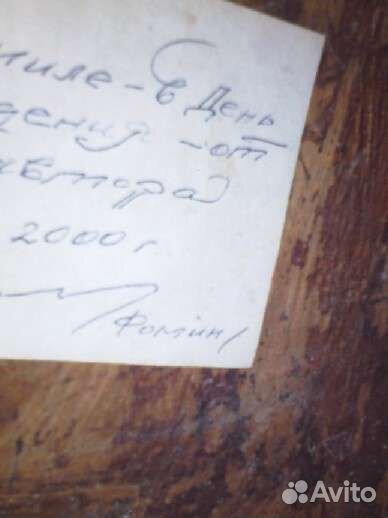 иле - в День
дения - от
автора
2000 г.
/Фомин/
Avito